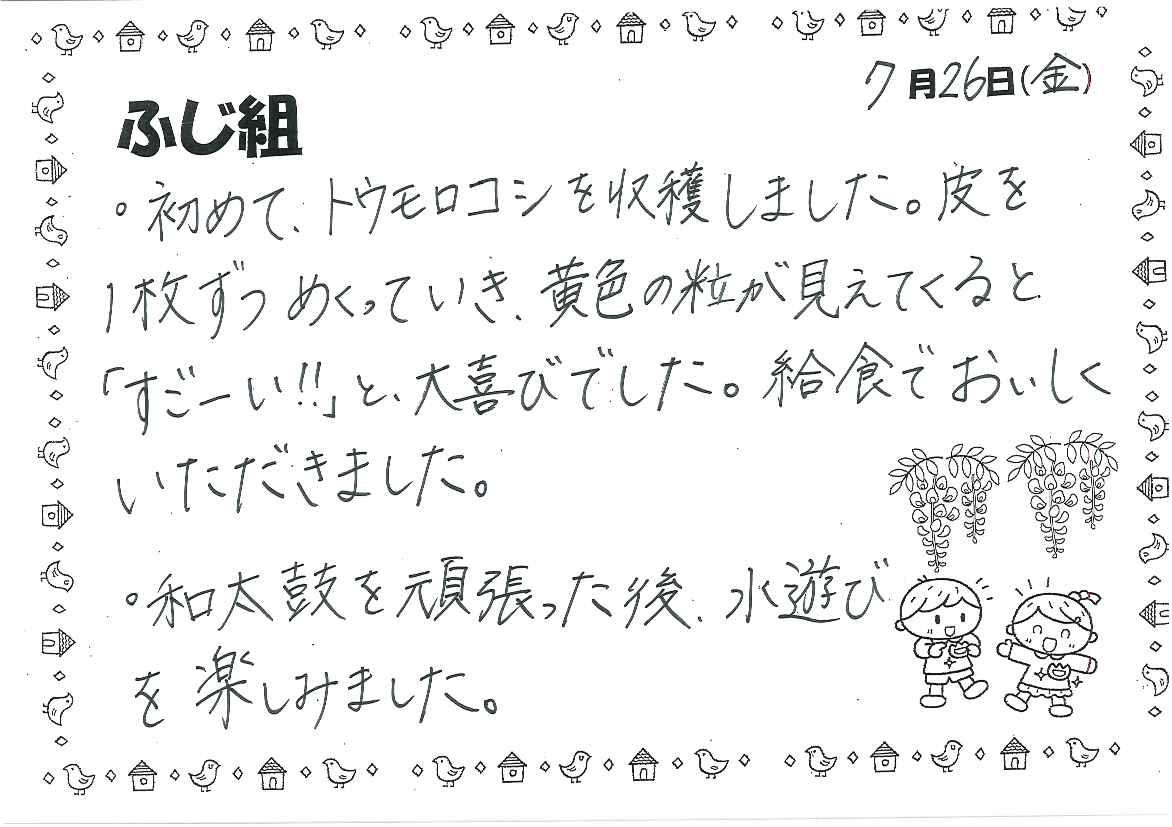 7月26日(金)
ふじ組
。初めて、トウモロコシを収穫しました。皮を
1枚ずつめくっていき、黄色の粒が見えてくると
「すごーい!!」と、大喜びでした。給食でおいしく
いただきました。
。和太鼓を頑張った後、水遊び
を楽しみました。